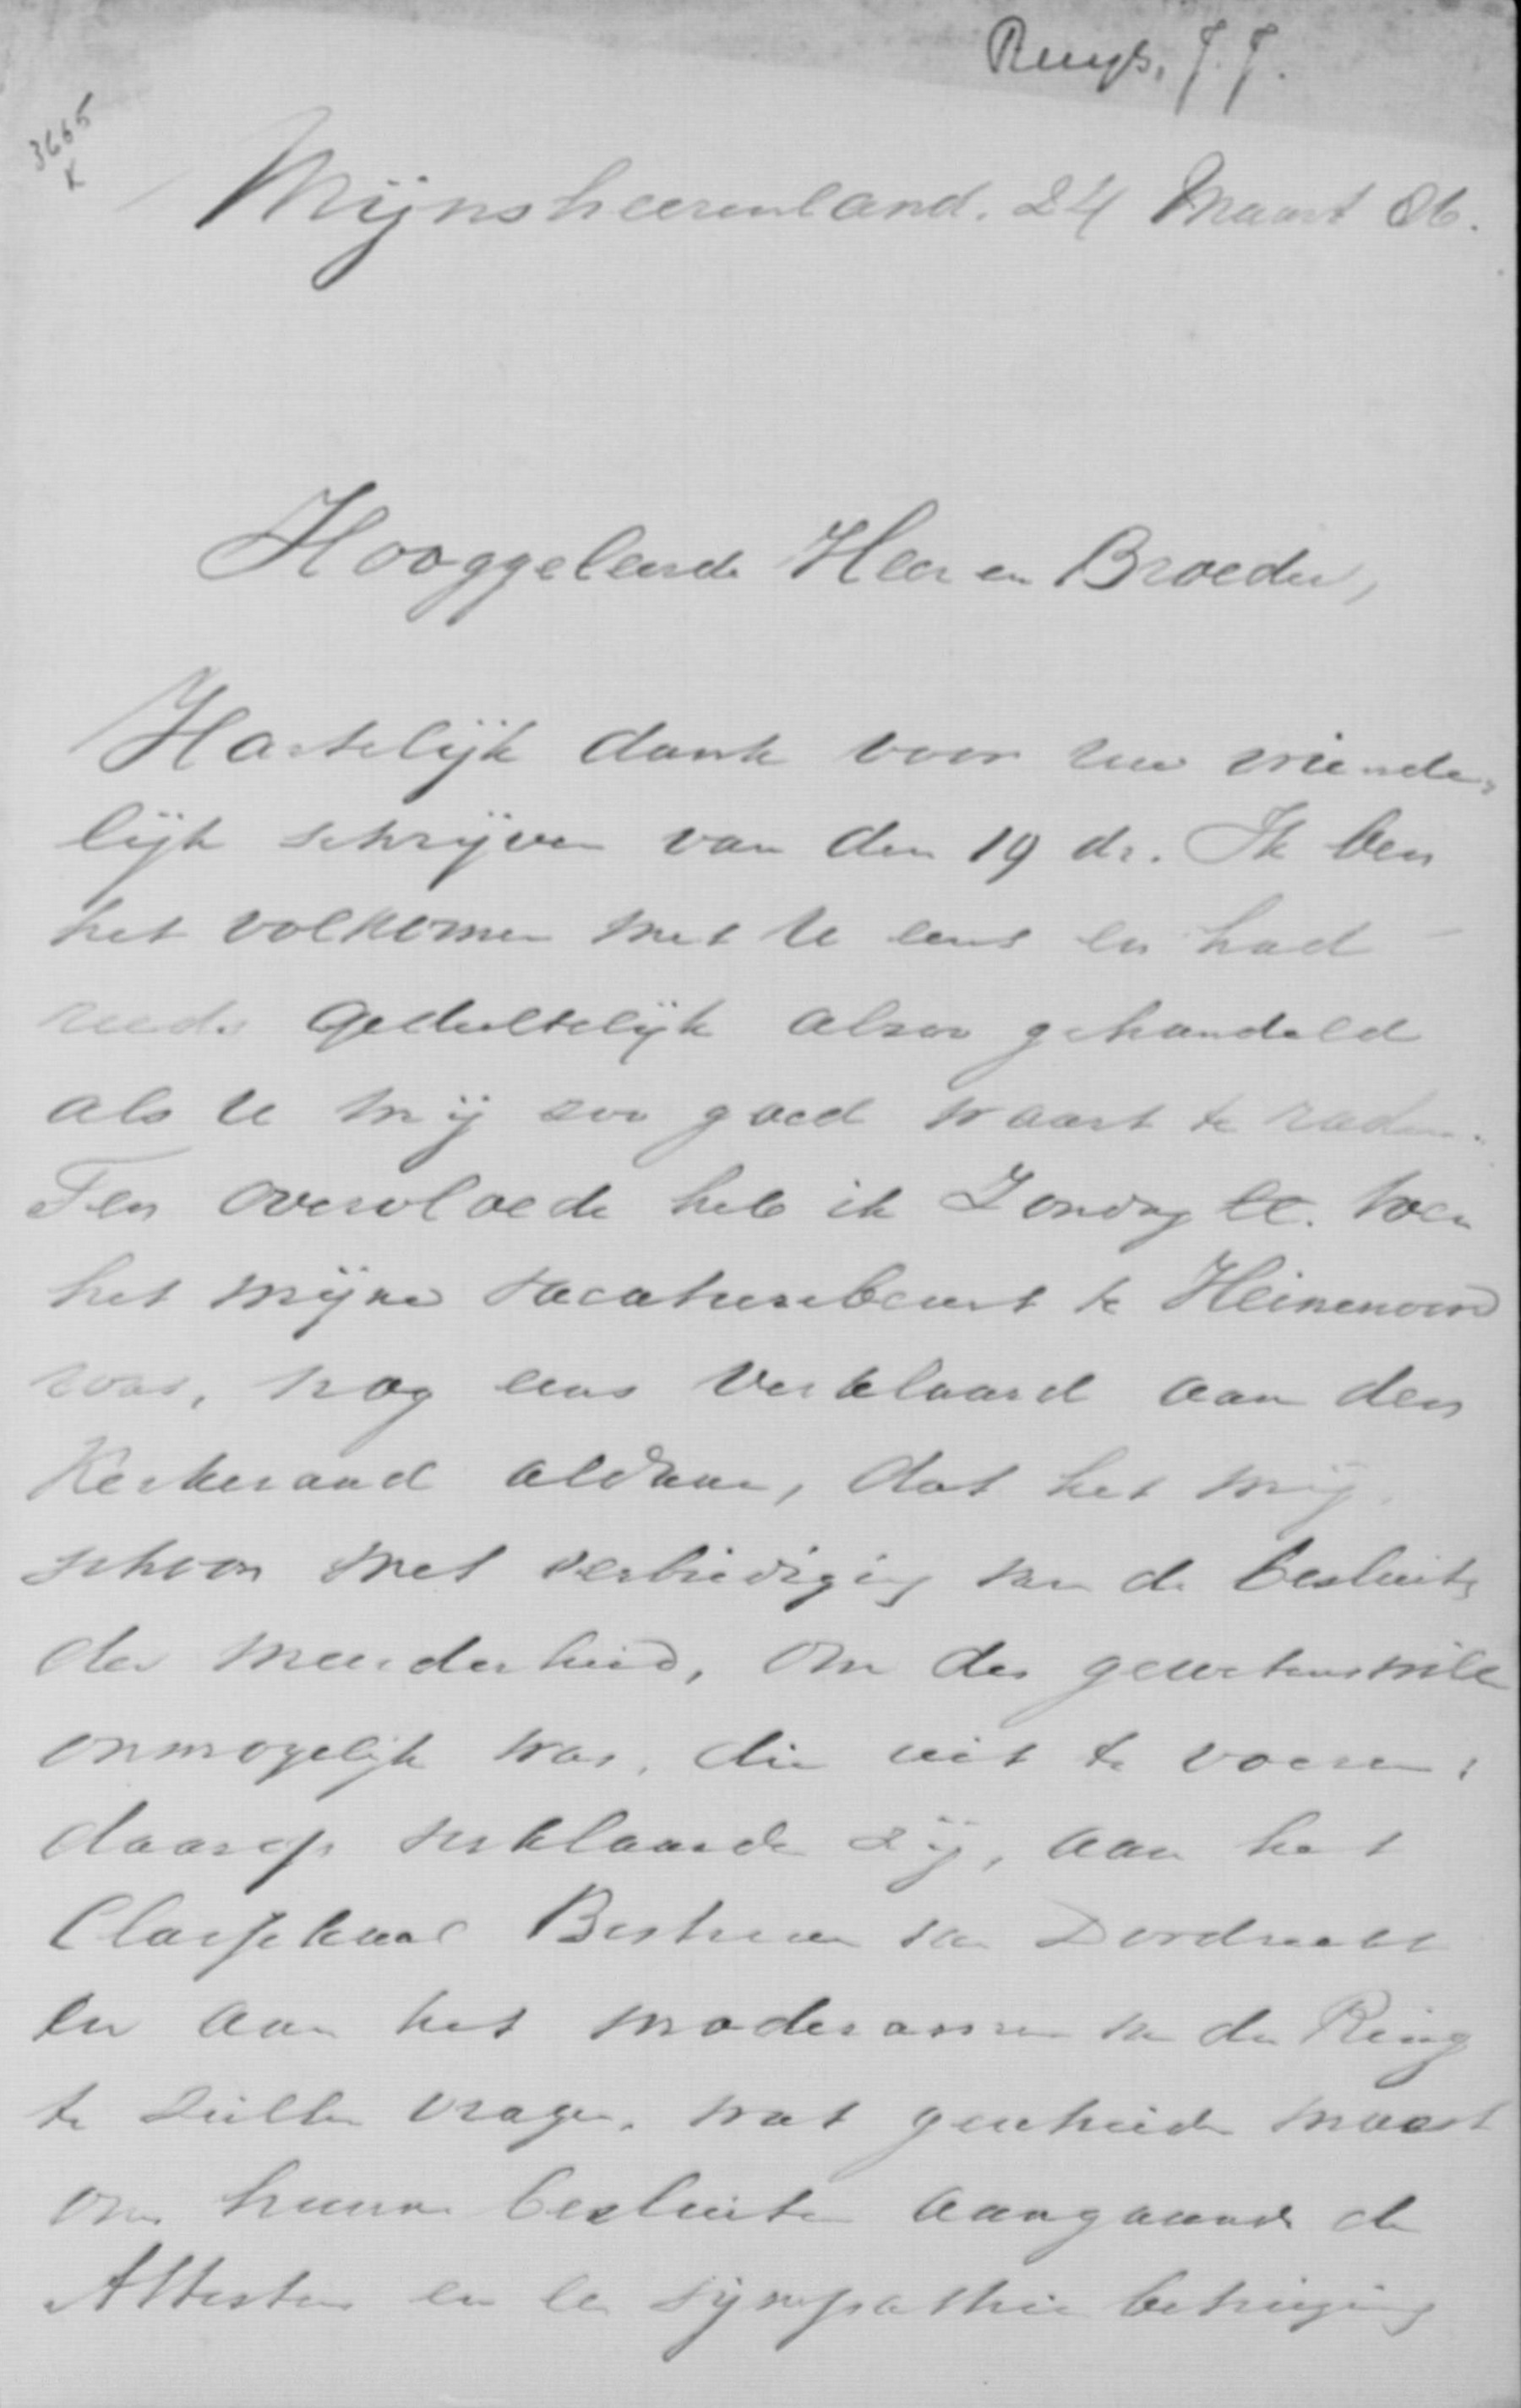 Ruys, J. J.
3665
x
Mijnsheerenland. 24 Maart 86.
Hooggeleerde Heer en Broeder,
Hartelijk dank voor uw vriende,
lijk schrijven van den 19 dr. Ik ben
het volkomen met U eens en had
reeds gedeeltelijk alzoo gehandeld
als U mij zoo goed waart te raden.
Ten overvloede heb ik Zondag ll. toen
het mijne vacaturebeurt te Heinenoord
was, nog eens verklaard aan den
Kerkeraad aldaar, dat het mij,
schoon met eerbiediging van de besluiten
der meerderheid, om des gewetenswil
onmogelijk was, die uit te voeren;
daarop verklaarde zij, aan het
Classikaal Bestuur van Dordrecht
en aan het moderamen van den Ring
te zullen vragen, wat geschieden moest
om hunne besluiten aangaande de
Attesten en de sympathie betuiging